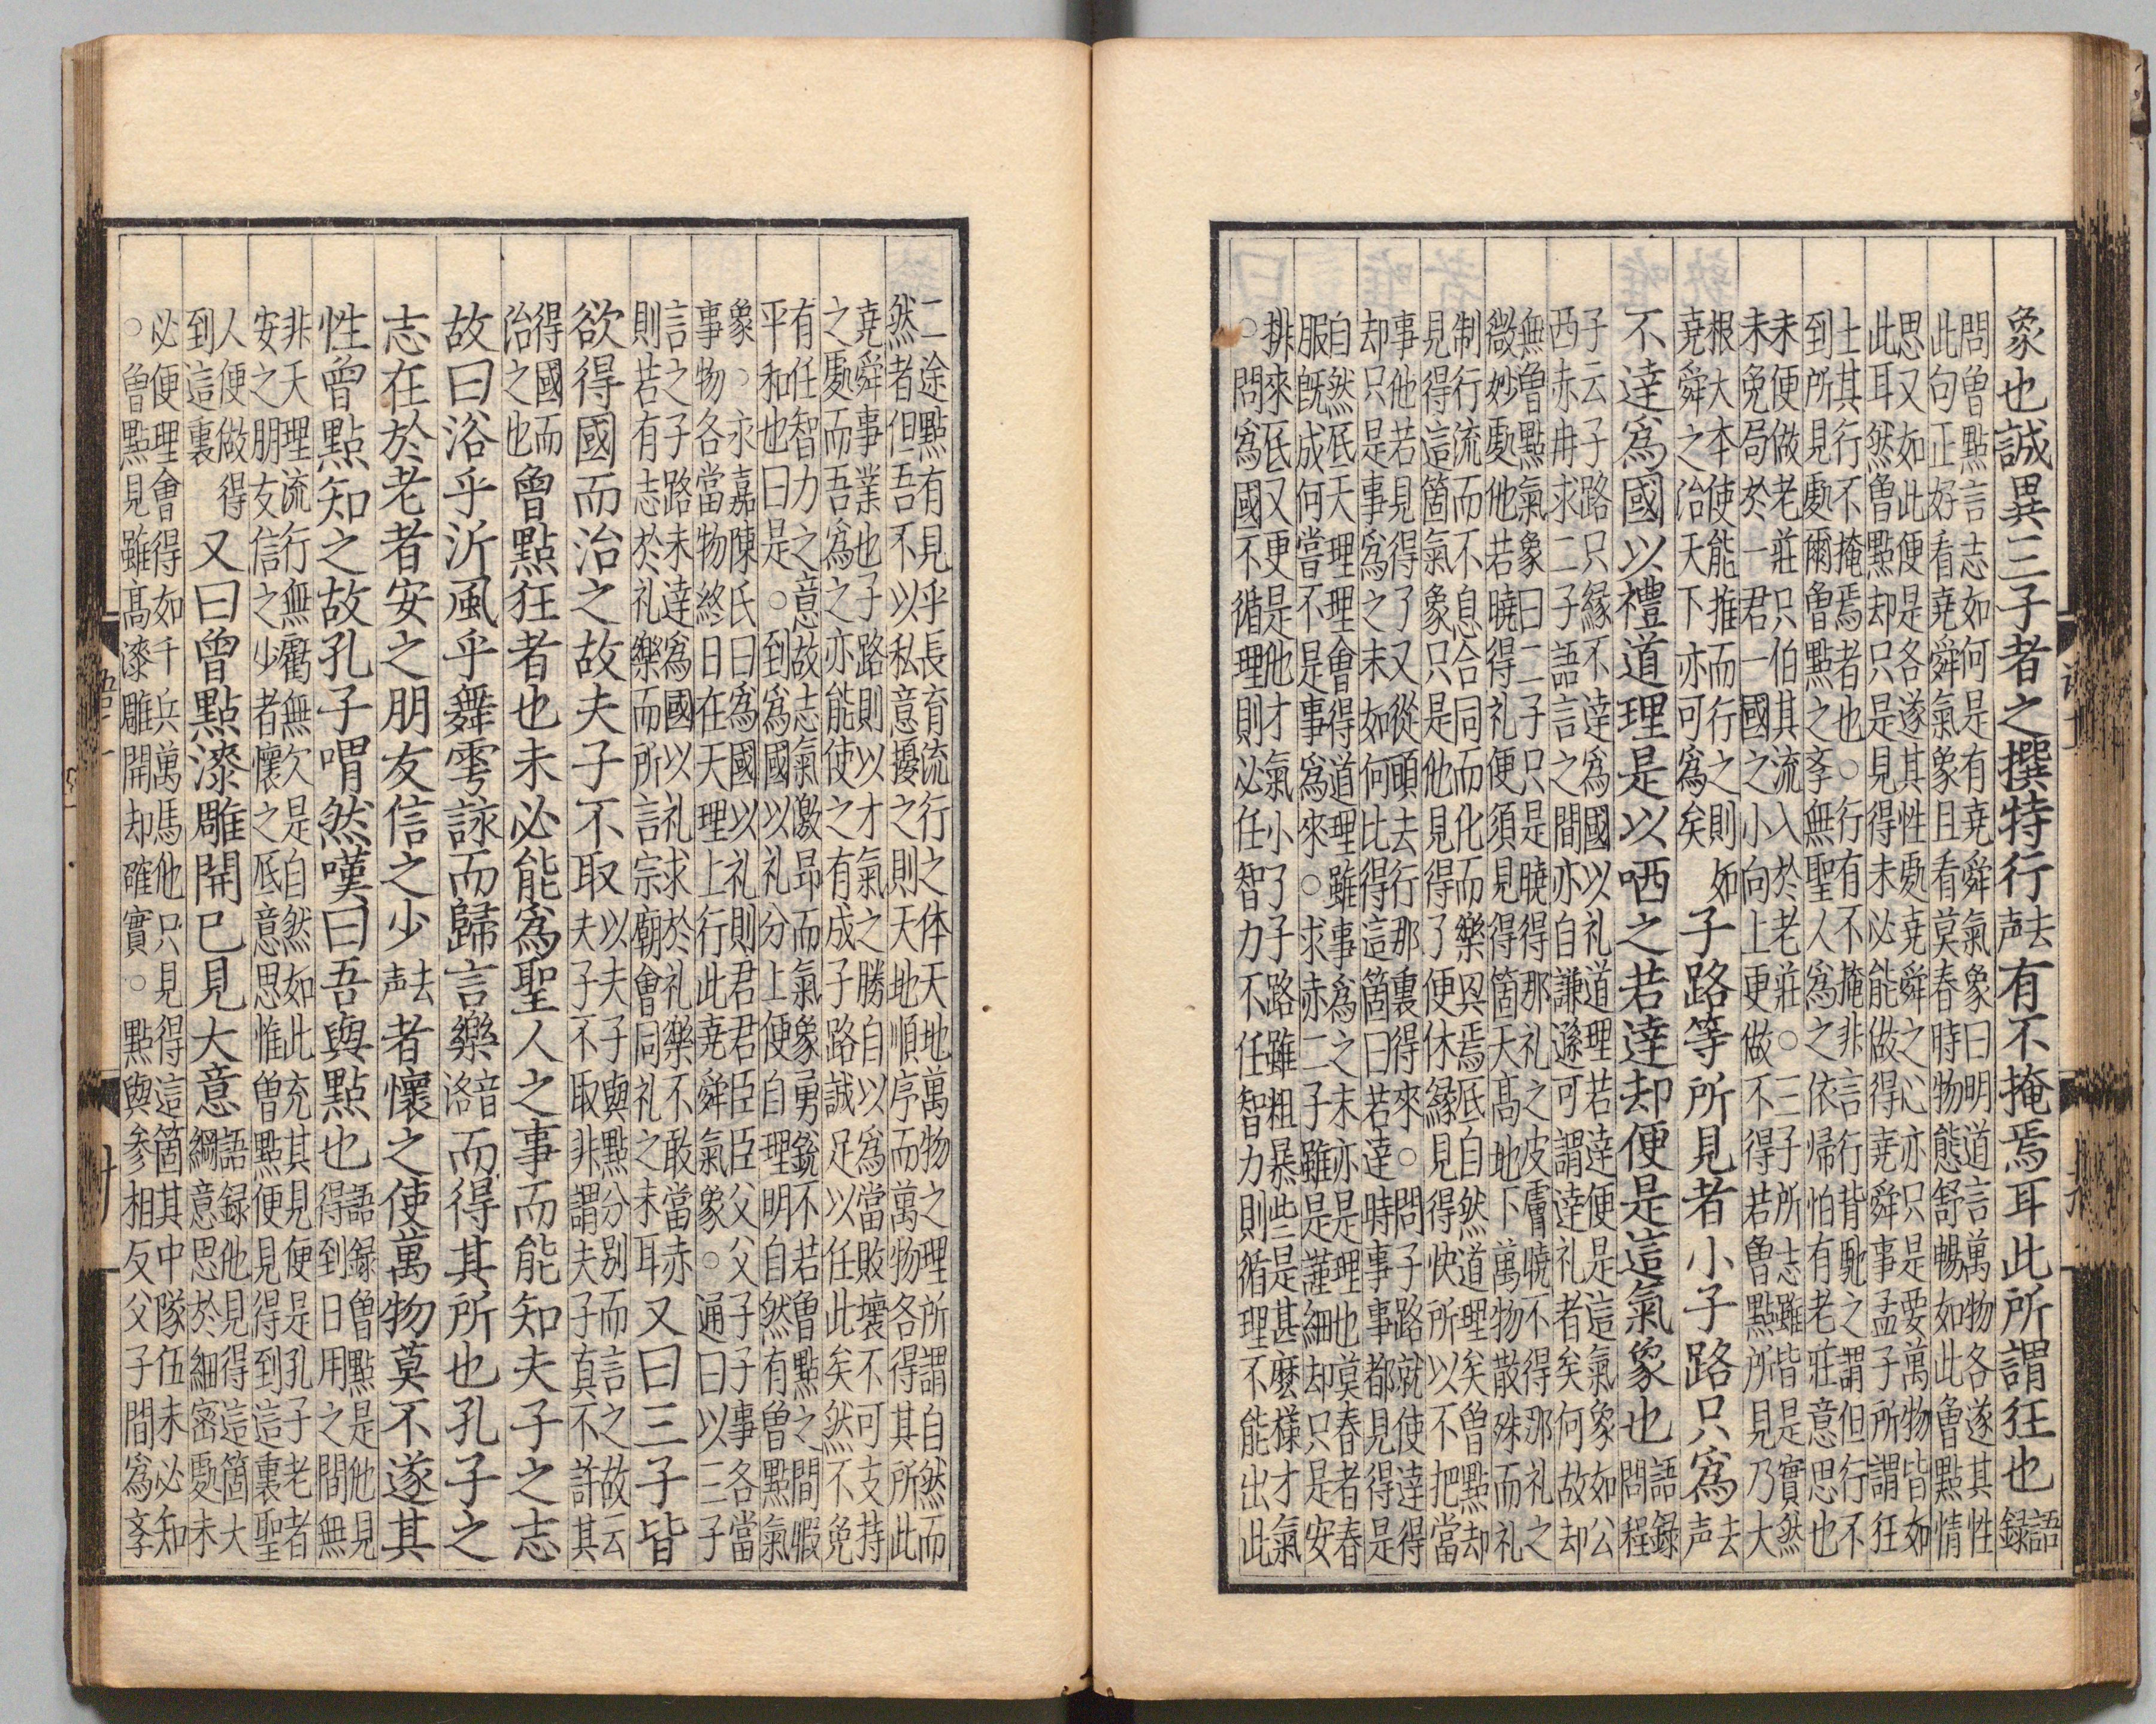 象也誠異三子者之撰特行去声有不掩焉耳此所謂狂也語録
問曾點言志如何是有堯舜氣象曰明道言萬物各遂其性
此句正好看堯舜氣象且看莫春時物態舒暢如此曾點情
思又如此便是各遂其性處堯舜之心亦只是要萬物皆如
此耳然曾點却只是見得未必能做得堯舜事孟子所謂狂
士其行不掩焉者也○行有不掩非言行背馳之謂但行不
到所見處爾曾點之斈無聖人爲之依帰怕有老莊意思也
未便做老莊只怕其流入於老莊○三子所志雖皆是實然
未免局於一君一國之小向上更做不得若曾點所見乃大
根大本使能推而行之則如
堯舜之治天下亦可爲矣
子路等所見者小子路只爲去声
不達爲國以禮道理是以哂之若達却便是這氣象也語録問程
子云子路只緣不達爲國以礼道理若達便是這氣象如公
西赤冉求二子語言之間亦自謙遜可謂達礼者矣何故却
無曾點氣象曰二子只是曉得那礼之皮膚曉不得那礼之
微妙處他若曉得礼便須見得箇天高地下萬物散殊而礼
制行流而不息合同而化而樂興焉底自然道理矣曾點却
見得這箇氣象只是他見得了便休緣見得快所以不把當
事他若見得了又從頭去行那裏得來○問子路就使達得
却只是事爲之末如何比得這箇曰若達時事事都見得是
自然底天理理會得道理雖事爲之末亦是理也莫春者春
服旣成何當不是事爲來○求赤二子雖是謹細却只是安
排來底又更是他才氣小了子路雖粗暴些是甚麽樣才氣
○問爲國不循理則必任智力不任智力則循理不能出此
二途點有見乎長育流行之体天地萬物之理所謂自然而
然者但吾不以私意擾之則天地順序而萬物各得其所此
堯舜事業也子路則以才氣之勝自以爲當敗壞不可支持
之處而吾爲之亦能使之有成子路誠足以任此矣然不免
有任智力之意故志氣激昂而氣象勇銳不若曾點之間暇
平和也曰是○到爲國以礼分上便自理明自然有曾點氣
象○永嘉陳氏曰爲國以礼則君君臣臣父父子子事各當
事物各當物終日在天理上行此堯舜氣象○通曰以三子
言之子路未達爲國以礼求於礼樂不敢當赤
則若有志於礼樂而所言宗廟會同礼之末耳
又曰三子皆
欲得國而治之故夫子不取
以夫子與點分別而言之故云
夫子不取非謂夫子真不許其
得國而
治之也
曾點狂者也未必能爲聖人之事而能知夫子之志
故曰浴乎沂風乎舞雩詠而歸言樂音洛而得其所也孔子之
志在於老者安之朋友信之少去声者懷之使萬物莫不遂其
性曾點知之故孔子喟然嘆曰吾與點也
語録曾點是他見
得到日用之間無
非天理流行無虧無欠是自然如此充其見便是孔子老者
安之朋友信之少者懷之底意思惟曾點便見得到這裏聖
人便做得
到這裏
又曰曾點漆雕開已見大意
語録他見得這箇大
綱意思於細密處未
必便理會得如千兵萬馬他只見得這箇其中隊伍未必知
○曾點見雖髙漆雕開却確實○點與參相反父子間爲斈